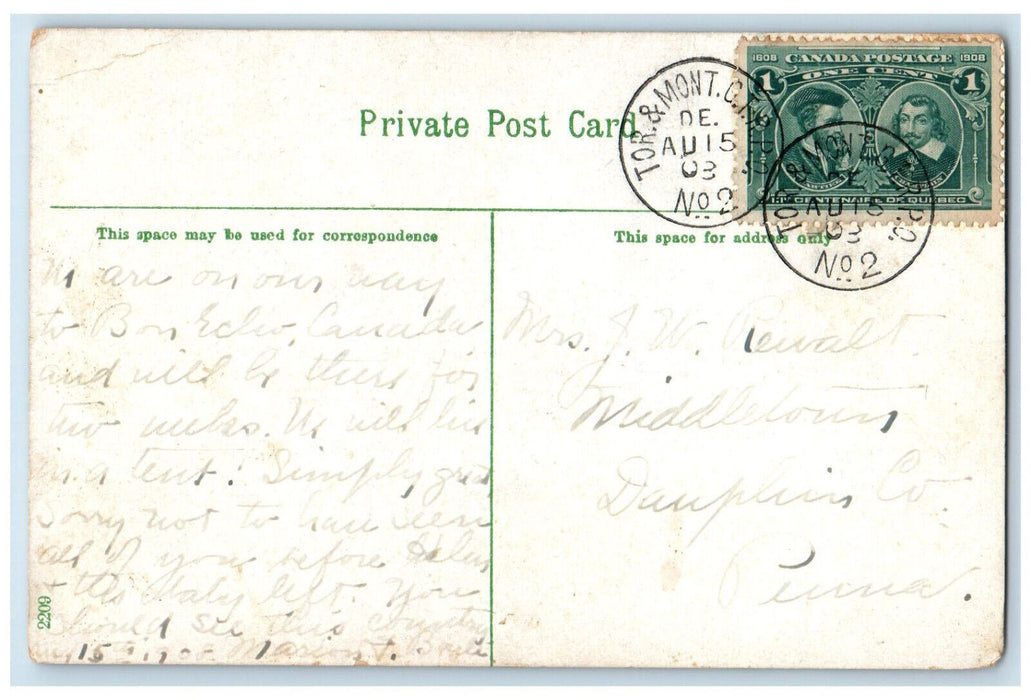 Private Post Card
1608 CANADA POSTAGE 1908
ONE CENT
1 1
CENTENAIRE DE QUEBEC
TOR. & MONT. C.P.R.
DE.
AU 15
08
No 2
TOR. & MONT.
DE
AU 15
08
No 2
This space may be used for correspondence
This space for address only
We are on our way
to Bon Echo, Canada
and will be there for
two weeks. We will live
in a tent! Simply great
Sorry not to have seen
all of you before Helen
+ the baby left. You
should see this country
15th 1908 Marion
Mrs. J. W. Rewalt.
Middletown
Dauphin Co.
Penna.
2209